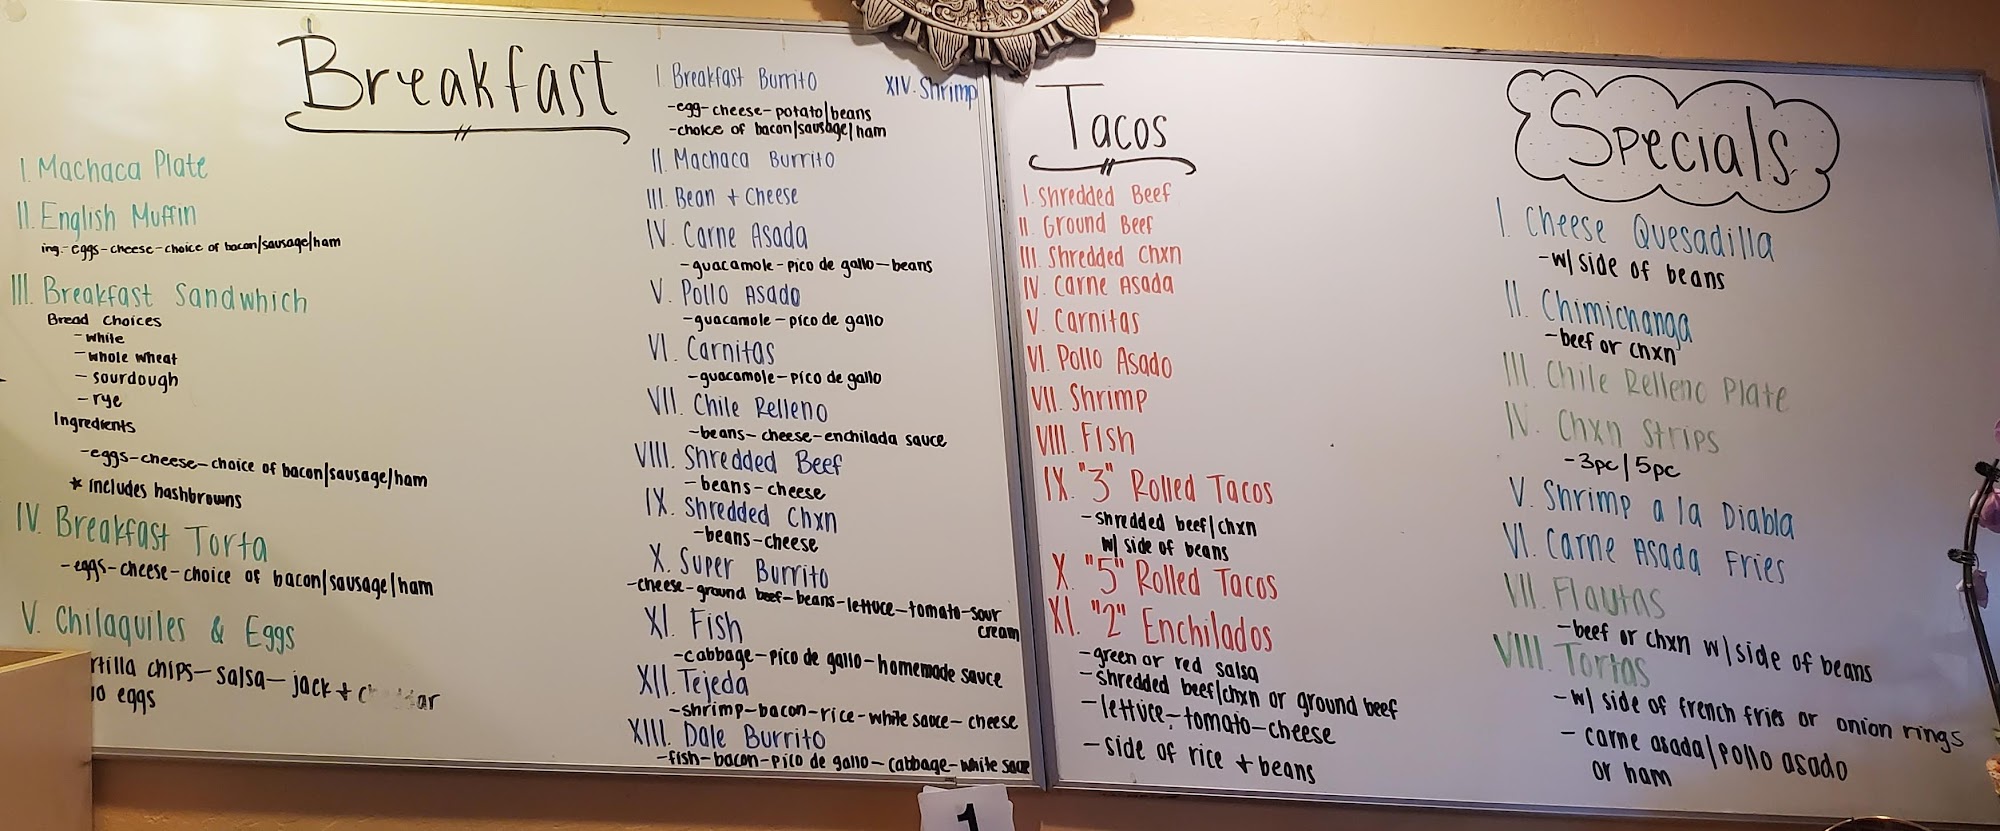 Breakfast
I. Machaca Plate
II. English Muffin
ing.-eggs-cheese-choice of bacon/sausage/ham
III. Breakfast Sandwhich
Bread Choices
-white
-whole wheat
-sourdough
-rye
Ingredients
-eggs-cheese-choice of bacon/sausage/ham
* includes hashbrowns
IV. Breakfast Torta
-eggs-cheese-choice of bacon/sausage/ham
V. Chilaquiles & Eggs
chips-salsa-jack +
eggs
I Breakfast Burrito
-egg-cheese-potato/beans
-choice of bacon/sausage/ham
II. Machaca Burrito
III. Bean + Cheese
IV. Carne Asada
-guacamole-pico de gallo-beans
V. Pollo Asado
-guacamole-pico de gallo
VI. Carnitas
-guacamole-pico de gallo
VII. Chile Relleno
-beans-cheese-enchilada sauce
VIII. Shredded Beef
-beans-cheese
IX. Shredded Chxn
-beans-cheese
X. Super Burrito
-cheese-ground beef-beans-lettuce-tomato-sour
cream
XI. Fish
-cabbage-pico de gallo-homemade sauce
XII. Tejeda
-shrimp-bacon-rice-white sauce-cheese
XIII. Dale Burrito
-fish-bacon-pico de gallo-cabbage-white sauce
XIV. Shrimp
Tacos
I. Shredded Beef
II. Ground Beef
III. Shredded Chxn
IV. Carne Asada
V. Carnitas
VI. Pollo Asado
VII. Shrimp
VIII. Fish
IX. "3" Rolled Tacos
-shredded beef/chxn
w/ side of beans
X. "5" Rolled Tacos
XI. "2" Enchilados
-green or red salsa
-shredded beef/chxn or ground beef
-lettuce-tomato-cheese
-side of rice + beans
Specials
I. Cheese Quesadilla
-w/ side of beans
II. Chimichanga
-beef or chxn
III. Chile Relleno Plate
IV. Chxn Strips
-3pc/5pc
V. Shrimp a la Diabla
VI. Carne Asada Fries
VII. Flautas
-beef or chxn w/ side of beans
VIII. Tortas
-w/ side of french fries or onion rings
-carne asada/pollo asado
or ham
1